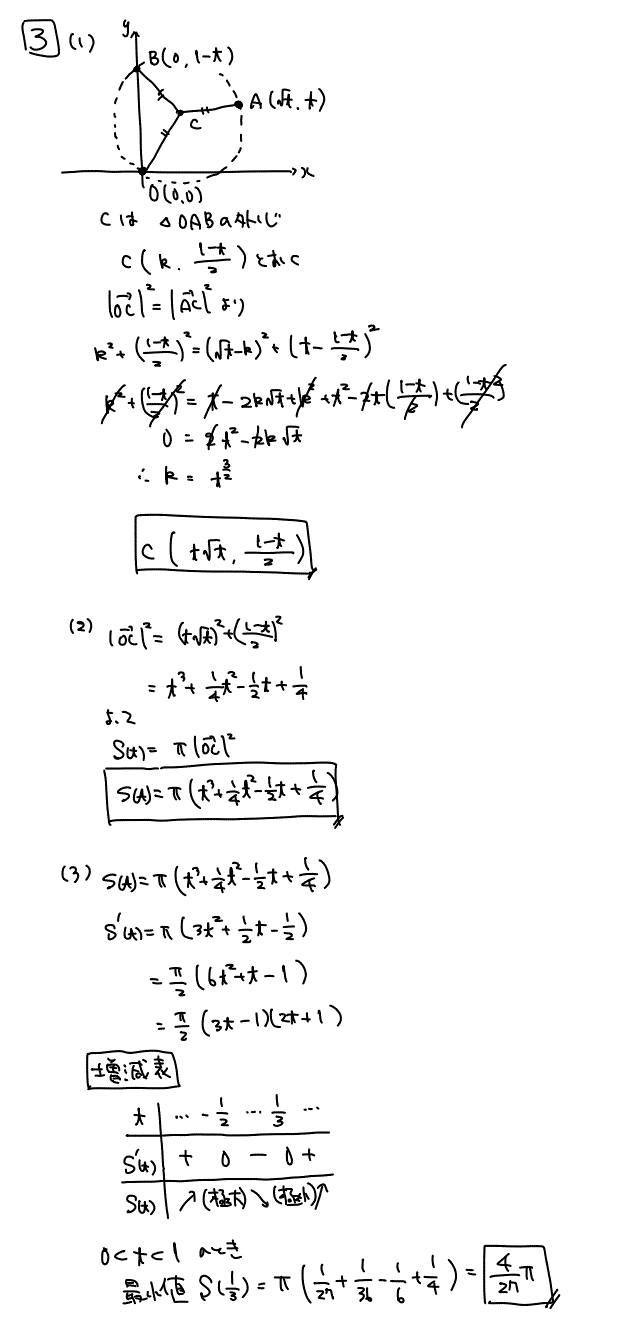 3 (1)
y
B(0, 1-t)
A(√t, t)
C
x
O(0,0)
Cは △OABの外心
C(k, (1-t)/2)とおく
|OC|² = |AC|² より
k² + ((1-t)/2)² = (√t-k)² + (t - (1-t)/2)²
k² + ((1-t)/2)² = t - 2k√t + k² + t² - 2t((1-t)/2) + ((1-t)/2)²
0 = 2t² - 2k√t
∴ k = t^(3/2)
C (t√t, (1-t)/2)
(2) |OC|² = (t√t)² + ((1-t)/2)²
= t³ + 1/4 t² - 1/2 t + 1/4
よって
S(t) = π|OC|²
S(t) = π(t³ + 1/4 t² - 1/2 t + 1/4)
(3) S(t) = π(t³ + 1/4 t² - 1/2 t + 1/4)
S'(t) = π(3t² + 1/2 t - 1/2)
= π/2 (6t² + t - 1)
= π/2 (3t-1)(2t+1)
増減表
t ... -1/2 ... 1/3 ...
S'(t) + 0 - 0 +
S(t) ↗ (極大) ↘ (極小) ↗
0<t<1 のとき
最小値 S(1/3) = π(1/27 + 1/36 - 1/6 + 1/4) = 4/27 π